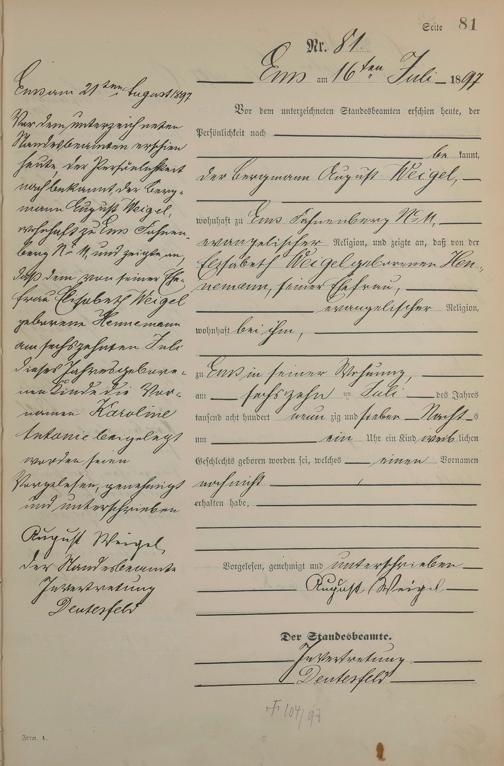 Seite 81
Nr. 81.
Ems am 16ten Juli 1897
Vor dem unterzeichneten Standesbeamten erschien heute, der
Persönlichkeit nach
be kannt,
der Bergmann August Weigel,
wohnhaft zu Ems Fahnenberg No 11,
evangelischer Religion, und zeigte an, daß von der
Elisabeth Weigel geborenen Hen-
nemann, seiner Ehefrau,
evangelischer Religion,
wohnhaft bei ihm,
zu Ems in seiner Wohnung,
am sechszehn ten Juli des Jahres
tausend acht hundert neun zig und sieben Nacht s
um ein Uhr ein Kind weib lichen
Geschlechts geboren worden sei, welches einen Vornamen
noch nicht
erhalten habe.
Vorgelesen, genehmigt und unterschrieben
August Weigel
Der Standesbeamte.
In Vertretung
Deutesfeld
F 104/97
Form. A.
Ems am 21ten August 1897
Vor dem unterzeichneten
Standesbeamten erschien
heute, der Persönlichkeit
nach bekannt, der Berg-
mann August Weigel,
wohnhaft zu Ems Fahnen-
berg No 11, und zeigte an,
daß dem von seiner Ehe-
frau Elisabeth Weigel
geborene Hennemann
am sechszehnten Juli
dieses Jahres gebore-
nen Kinde die Vor-
namen Karoline
Antonie beigelegt
worden seien
Vorgelesen, genehmigt
und unterschrieben
August Weigel
der Standesbeamte
In Vertretung
Deutesfeld